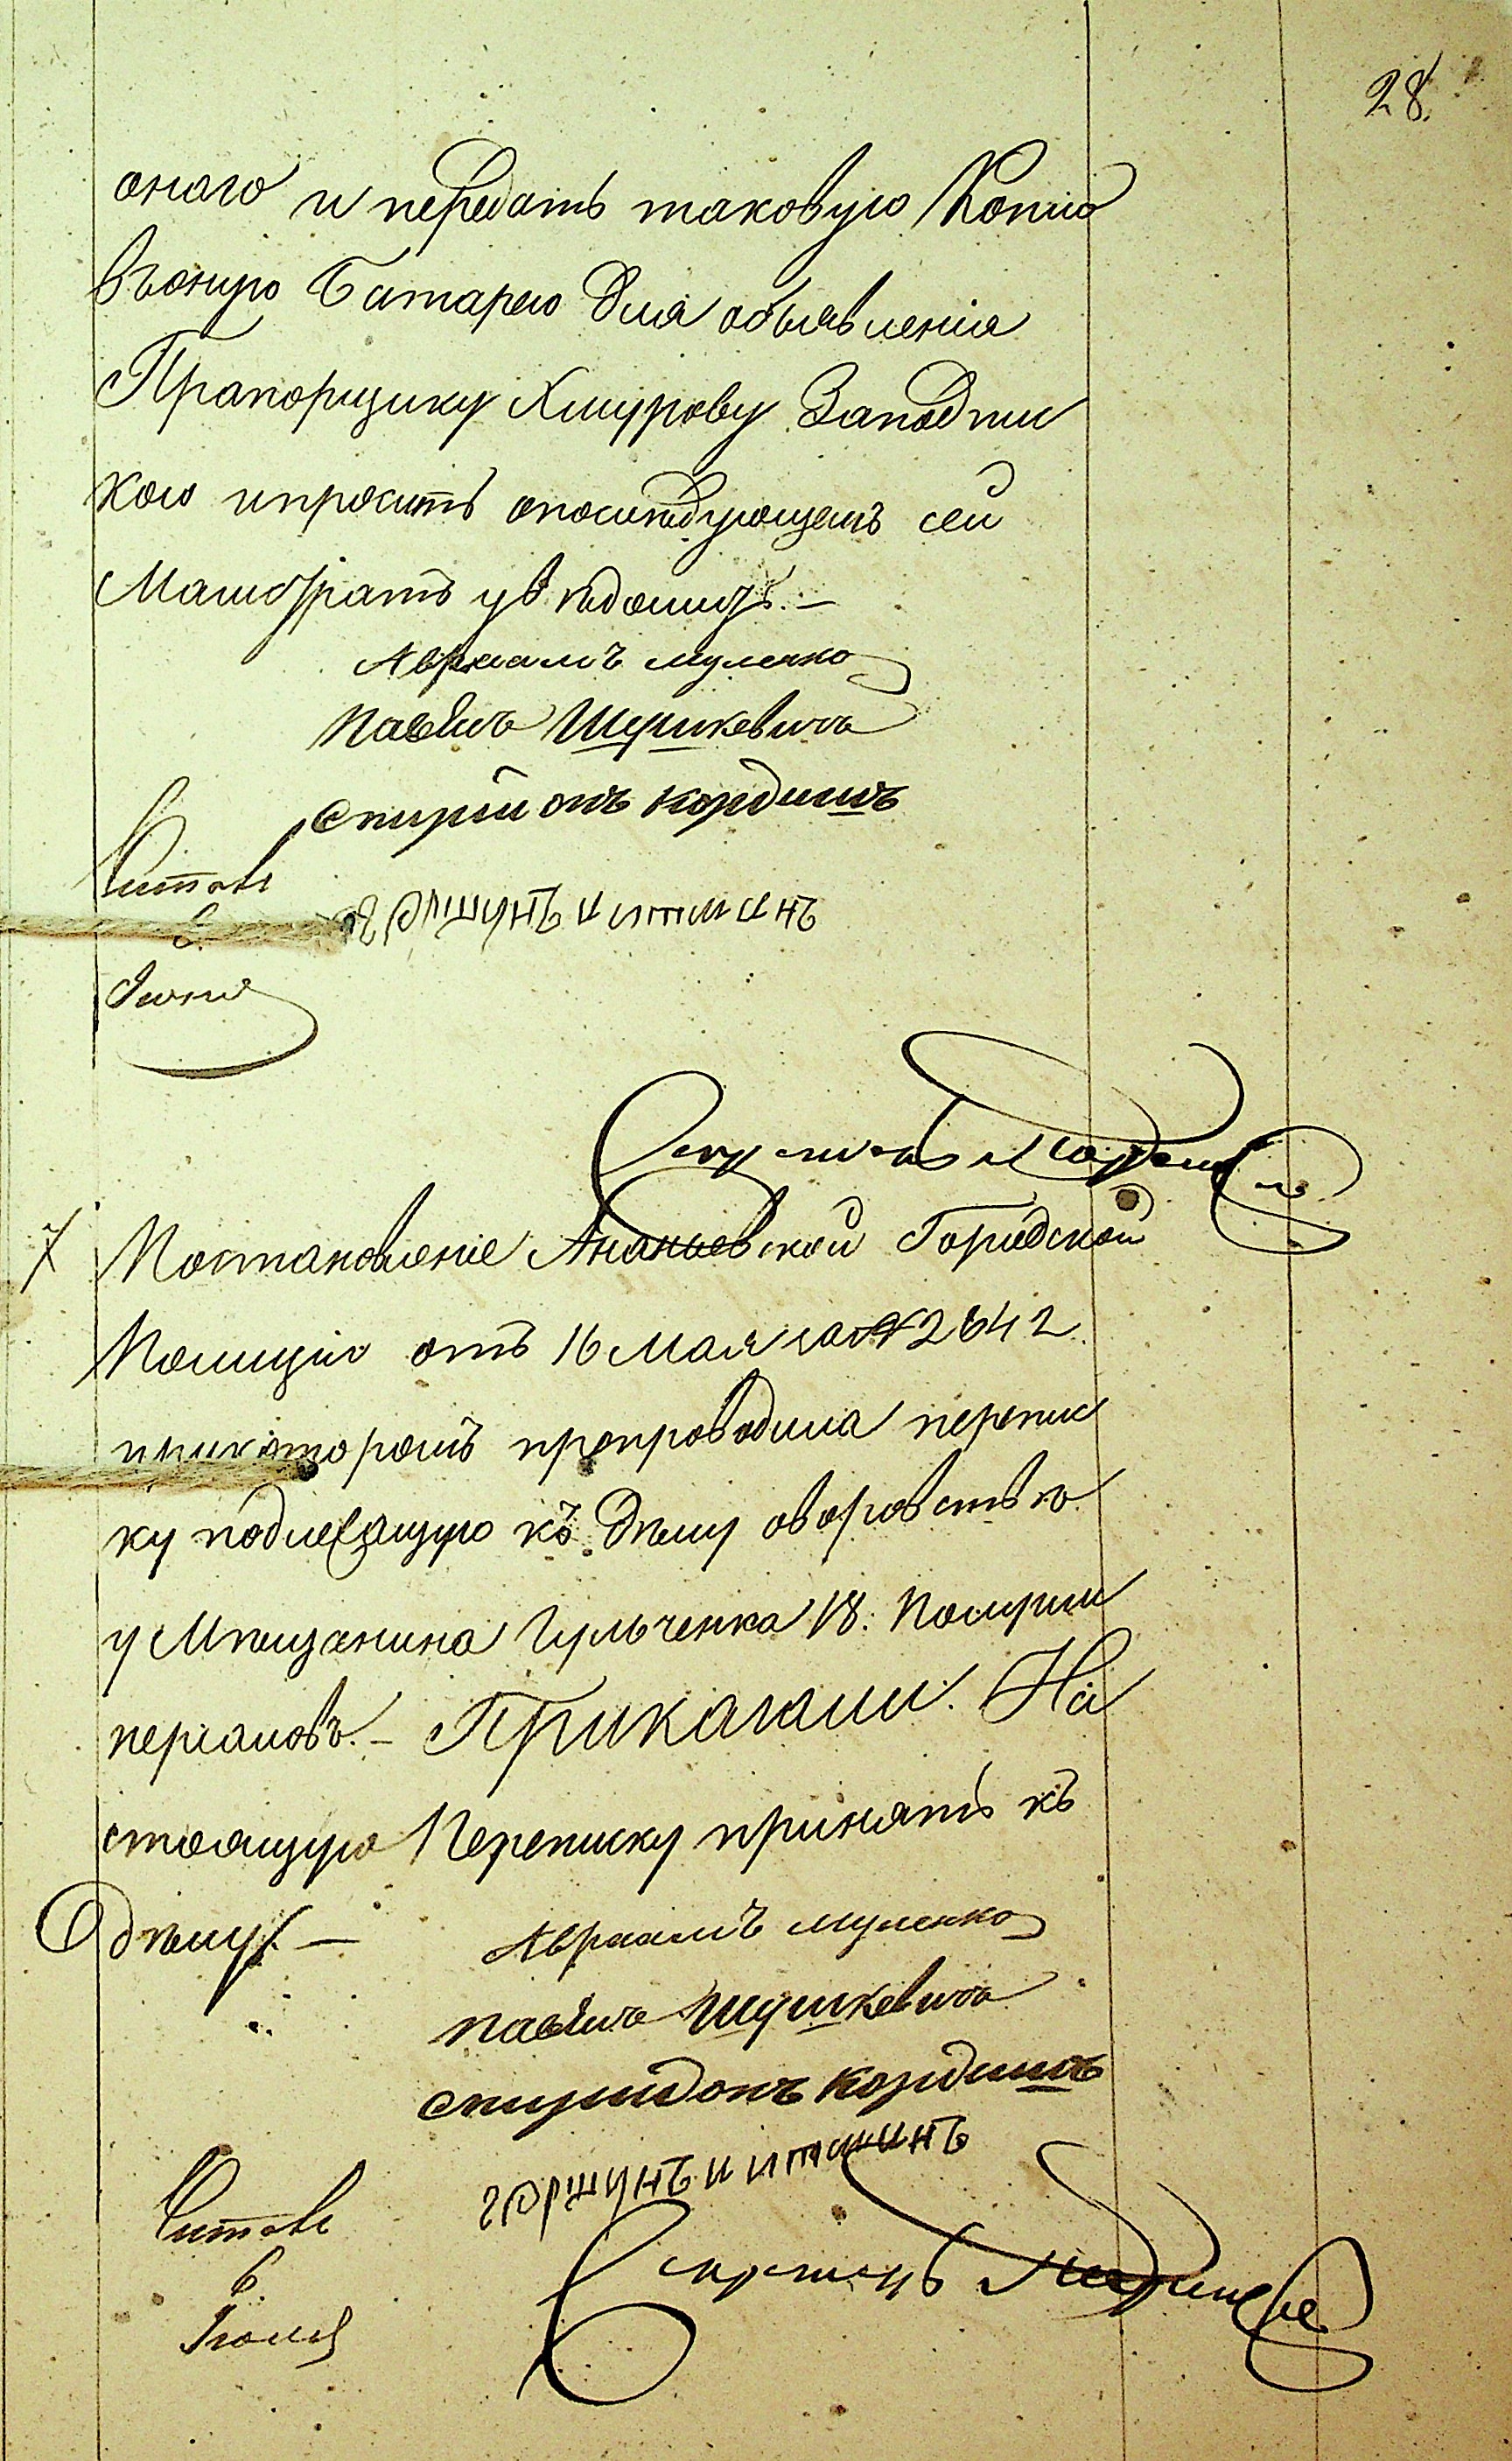 28.
онаго и передать таковую Копию
въоную Батарею для объявленія
Прапорщику Хмурову Заподпис
кою ипросить опослѣдующемъ сей
Магистратъ увѣдомить. —
Авраамъ муленко
Павелъ Шушкевичъ
спиридонъ кордишъ
Читалъ
6.
гершунъ и итманъ
Іюня
Секретарь
7 Постановленіе Ананьевской Городской
Полиціи отъ 16 Мая за № 2642
прикоторомъ препроводила перепис
ку подлежащую къ дѣлу оворовствѣ
у Мѣщанина Гульченка 18. Полуим
періаловъ. — Приказали. На
стоящую Переписку принять къ
дѣлу. —
Авраамъ муленко
Павелъ Шушкевичъ
спиридонъ кордишъ
гершунъ и итманъ
Читалъ
6.
Іюня
Секретарь